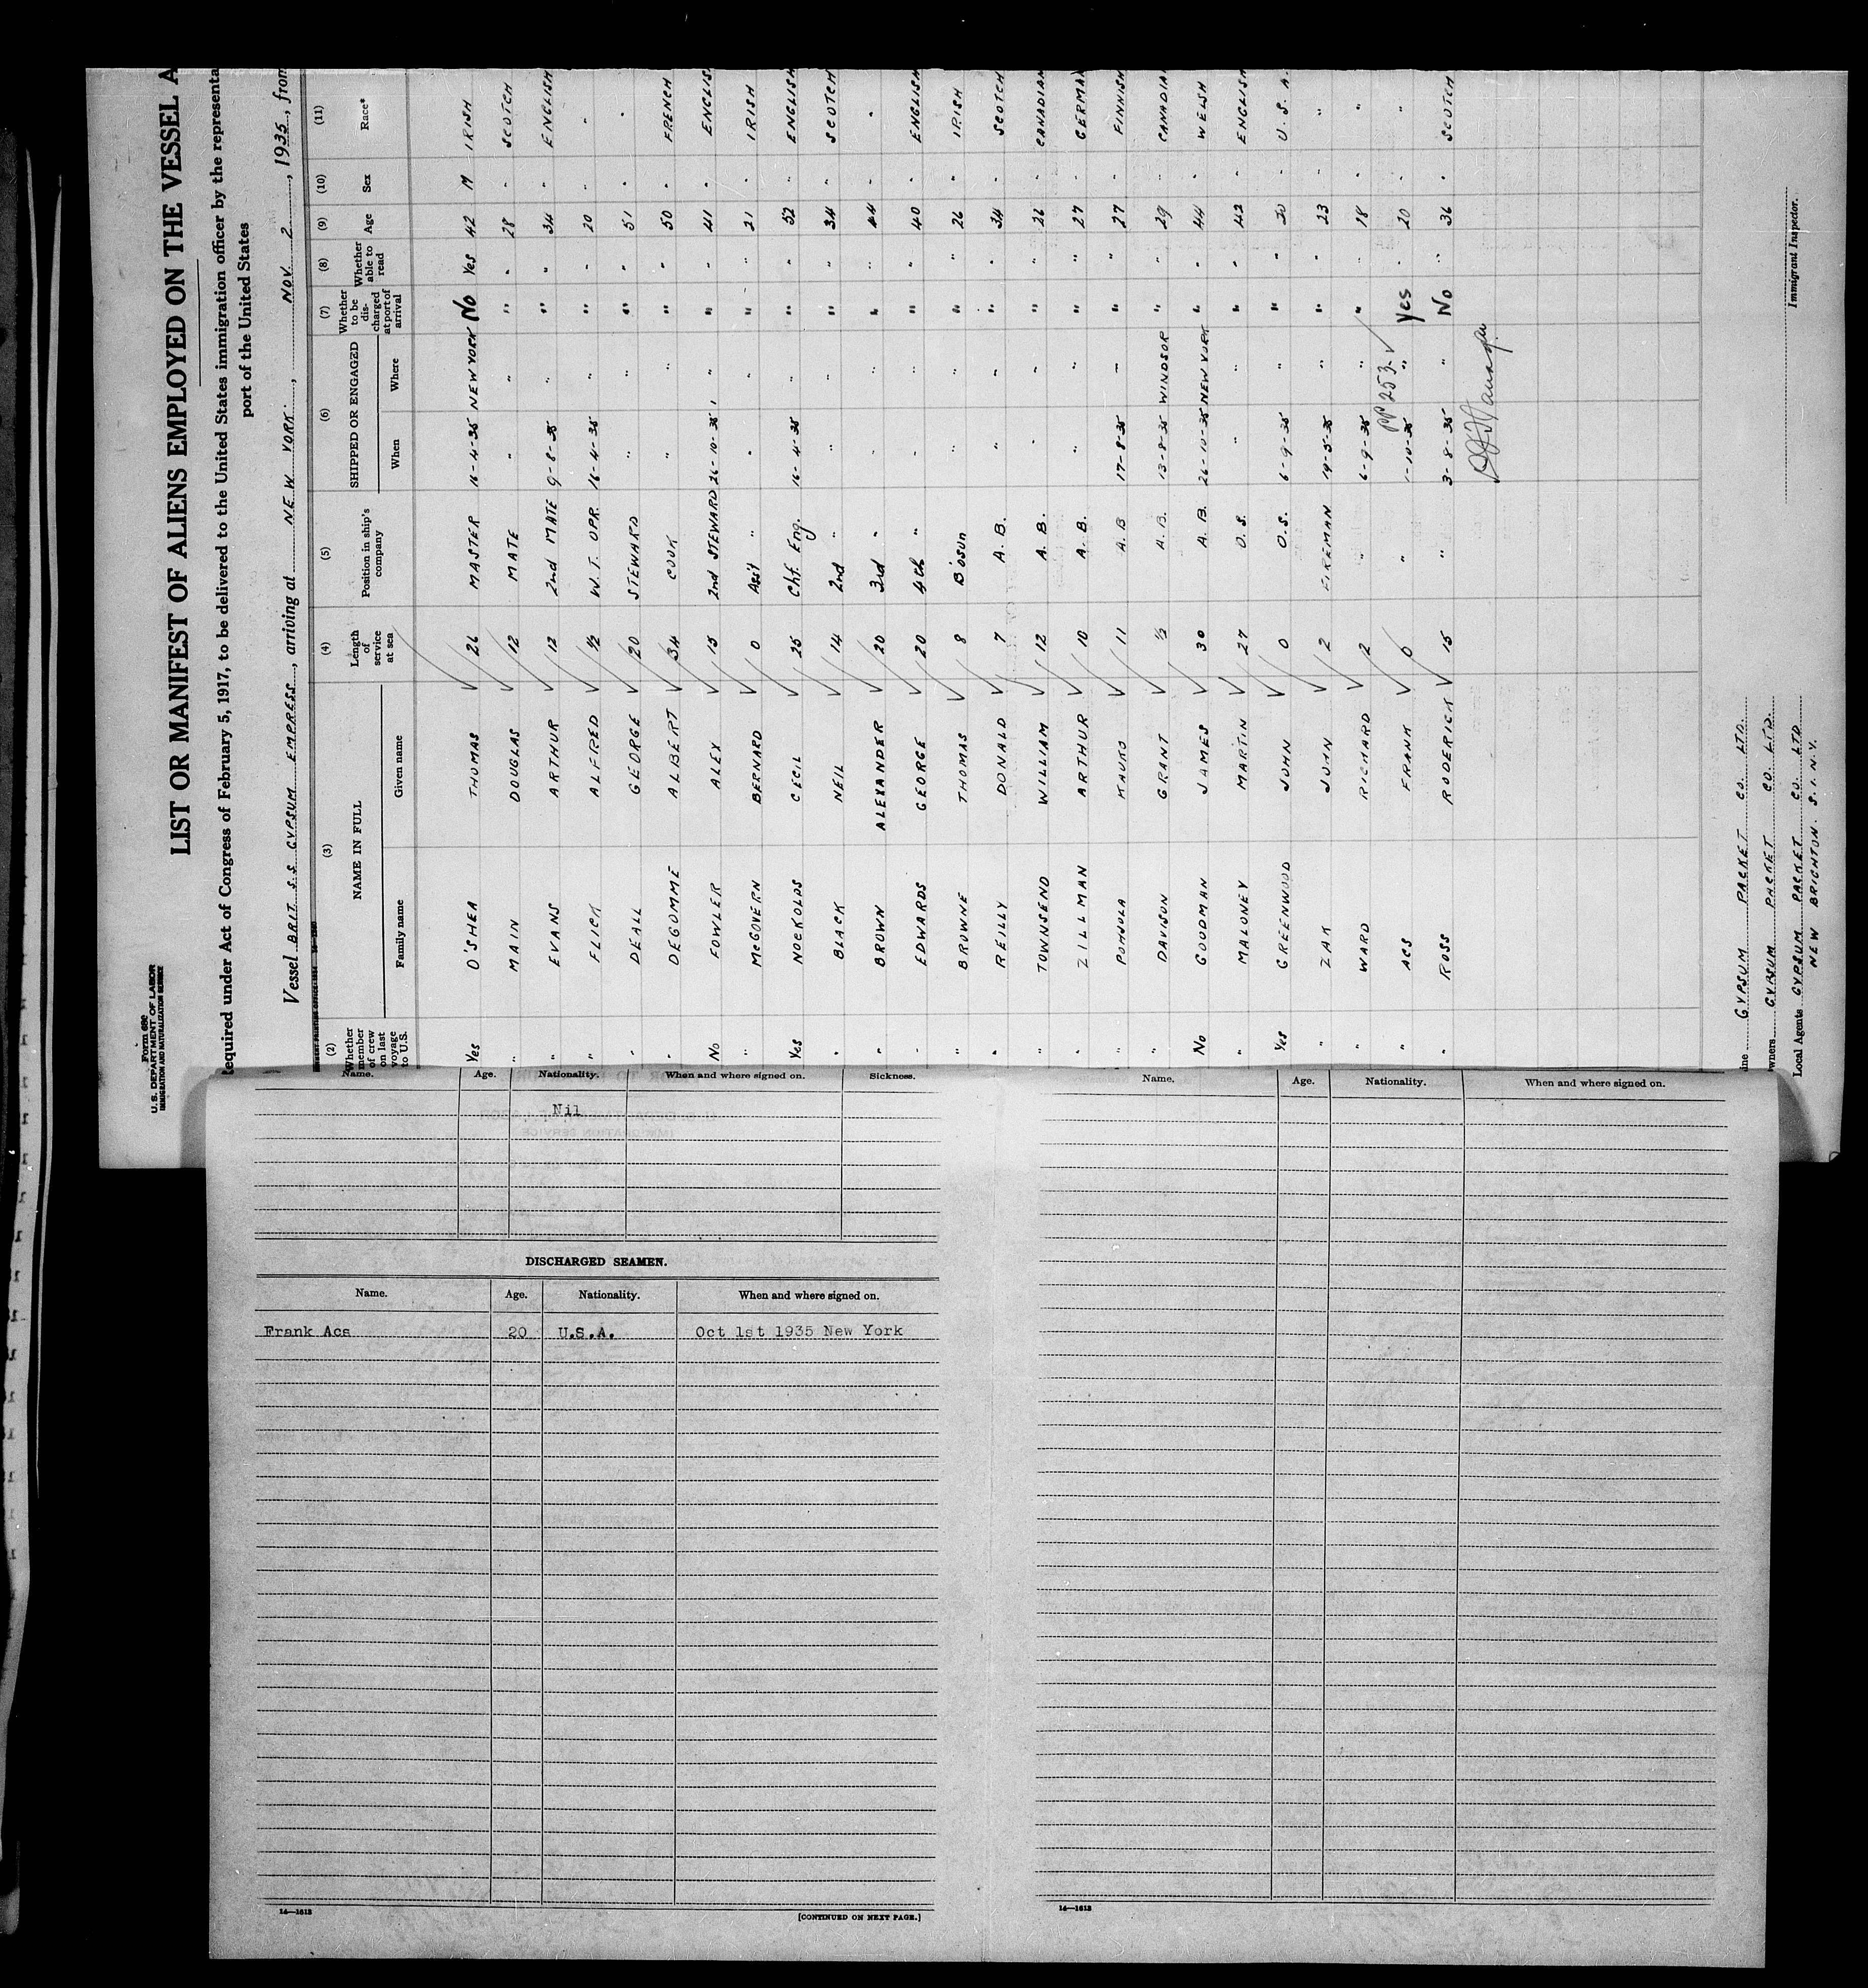 Form 680
U. S. DEPARTMENT OF LABOR
IMMIGRATION AND NATURALIZATION SERVICE
LIST OR MANIFEST OF ALIENS EMPLOYED ON THE VESSEL A
equired under Act of Congress of February 5, 1917, to be delivered to the United States immigration officer by the representa
port of the United States
Vessel BRIT. S.S. GYPSUM EMPRESS, arriving at NEW YORK, NOV 2, 1935, from
(2) (3) (4) (5) (6) (7) (8) (9) (10) (11)
Whether member of crew on last voyage to U.S. NAME IN FULL Family name Given name Length of service at sea Position in ship's company SHIPPED OR ENGAGED When Where Whether to be discharged at port of arrival Whether able to read Age Sex Race*
Yes O'SHEA THOMAS 26 MASTER 16-4-35 NEW YORK No Yes 42 M IRISH
" MAIN DOUGLAS 12 MATE " " " " 28 " SCOTCH
" EVANS ARTHUR 12 2nd MATE 9-8-35 " " " 34 " ENGLISH
" FLICK ALFRED ½ W.T. OPR. 16-4-35 " " " 20 " "
" DEALL GEORGE 20 STEWARD " " " " 51 " "
" DEGOMME ALBERT 34 COOK " " " " 50 " FRENCH
No FOWLER ALEX 15 2nd STEWARD 26-10-35 " " " 41 " ENGLIS
" McGOVERN BERNARD 0 Ass't " " " " " 21 " IRISH
Yes NOCKOLDS CECIL 25 Chf. Eng. 16-4-35 " " " 52 " ENGLISH
" BLACK NEIL 14 2nd " " " " " 34 " SCOTCH
" BROWN ALEXANDER 20 3rd " " " " " 44 " "
" EDWARDS GEORGE 20 4th " " " " " 40 " ENGLISH
" BROWNE THOMAS 8 B'osun " " " " 26 " IRISH
" REILLY DONALD 7 A. B. " " " " 34 " SCOTCH
" TOWNSEND WILLIAM 12 A. B. " " " " 26 " CANADIAN
" ZILLMAN ARTHUR 10 A. B. " " " " 27 " GERMAN
" POHJOLA KAUKO 11 A. B 17-8-35 " " " 27 " FINNISH
" DAVISON GRANT ½ A. B. 13-8-35 WINDSOR " " 29 " CANADIA
No GOODMAN JAMES 30 A. B. 26-10-35 NEW YORK " " 44 " WELSH
" MALONEY MARTIN 27 O.S. " " " " 42 " ENGLISH
Yes GREENWOOD JOHN 0 O.S. 6-9-35 " " " 20 " U. S. A.
" ZAK JOHN 2 FIREMAN 19-5-35 " " " 23 " "
" WARD RICHARD 2 " 6-9-35 " " " 18 " "
PP 253
" ACS FRANK 0 " 1-10-35 " Yes " 20 " "
" ROSS RODERICK 15 " 3-8-35 " No " 36 " SCOTCH
ine GYPSUM PACKET CO. LTD.
wners GYPSUM PACKET CO. LTD.
Local Agents GYPSUM PACKET CO. LTD
NEW BRIGHTON. S.I. N.Y.
Immigrant Inspector.
Name. Age. Nationality. When and where signed on. Sickness.
Nil
DISCHARGED SEAMEN.
Name. Age. Nationality. When and where signed on.
Frank Acs 20 U.S.A. Oct 1st 1935 New York
14—1613
[CONTINUED ON NEXT PAGE.]
Name. Age. Nationality. When and where signed on.
14—1613